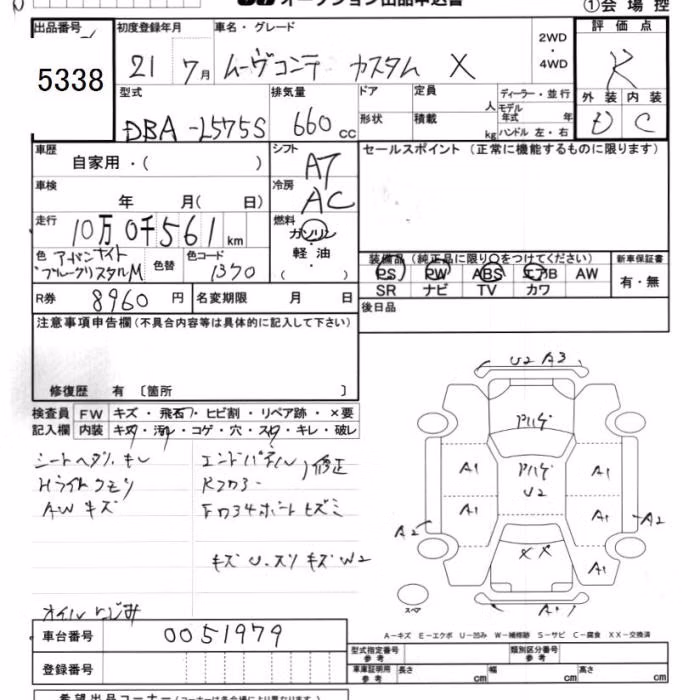 オークション出品申込書
①会場控
出品番号
5338
初度登録年月
21 7月
車名・グレード
ムーヴコンテ カスタム X
2WD
・
4WD
評価点
R
外装 内装
D C
型式
DBA-L575S
排気量
660 cc
ドア
形状
定員
人
積載
kg
ディーラー・並行
モデル
年式 年
ハンドル 左・右
車歴
自家用・( )
シフト
AT
セールスポイント (正常に機能するものに限ります)
車検
年 月( 日)
冷房
AC
走行
10万0千561 km
燃料
ガソリン
・
軽油
( )
色 アーバンナイト
ブルークリスタルM
色替
色コード
1370
装備品 (純正品に限り○をつけてください)
PS PW ABS エアB AW
SR ナビ TV カワ
新車保証書
有・無
R券 8960 円
名変期限 月 日
後日品
注意事項申告欄 (不具合内容等は具体的に記入して下さい)
修復歴 有 〔箇所 〕
検査員 FW キズ・飛石・ヒビ割・リペア跡・×要
記入欄 内装 キズ・汚れ・コゲ・穴・スレ・キレ・破レ
シートヘタリ.キレ
Hライトクモリ
AWキズ
エンドパネル
修正
キズ U.スリキズ W2
オイルにじみ
U2 A3
A1
A1
U2
A1
A1
A2
A2
XX
A1
スペア
A1
A-キズ E-エクボ U-凹み W-補修跡 S-サビ C-腐食 XX-交換済
車台番号 0051979
登録番号
型式指定番号
参考
類別区分番号
参考
車庫証明用
参考
長さ cm
幅 cm
高さ cm
希望出品コーナー